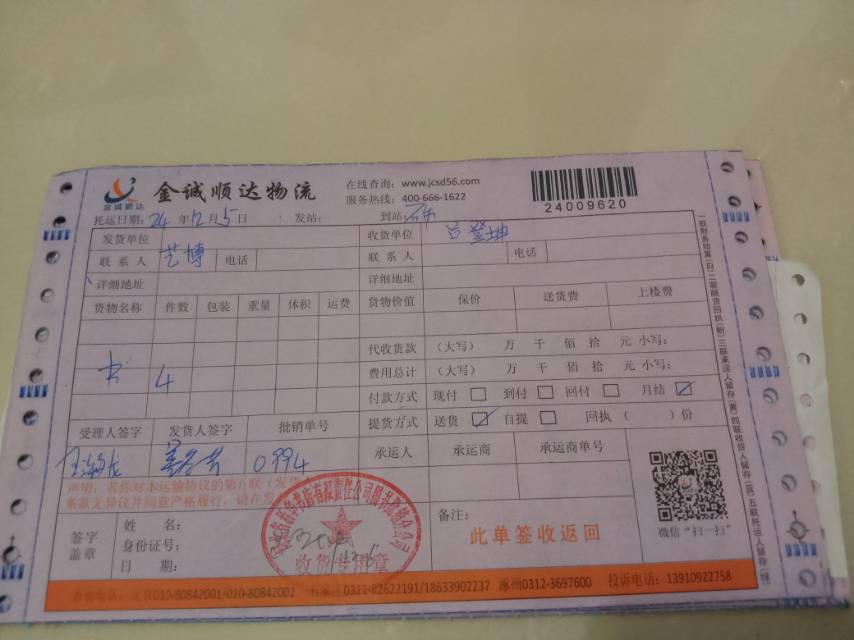 金诚顺达
金诚顺达物流
在线查询：www.jcsd56.com
服务热线：400-666-1622
24009620
托运日期：24 年 12 月 5 日 发站： 到站：
发货单位 收货单位
联系人 艺博 电话 联系人 电话
详细地址 详细地址
货物名称 件数 包装 重量 体积 运费 货物价值 保价 送货费 上楼费
代收货款 （大写） 万 千 佰 拾 元 小写：
书 4 费用总计 （大写） 万 千 佰 拾 元 小写：
付款方式 现付 □ 到付 □ 回付 □ 月结 ☑
受理人签字 发货人签字 批销单号 提货方式 送货 ☑ 自提 □ 回执（ ）份
0994 承运人 承运商 承运商单号
声明：若你对本运输协议的第五联（发
条款无异议并同意严格履行，请在发
签字盖章 姓名：
身份证号：
日期：
收货专用章
备注：
此单签收返回
微信“扫一扫”
北京010-80842001/010-80842002 石家庄0311-82622191/18633902237 涿州0312-3697600 投诉电话：13910922758
一联财务结算(白)二联随货回执(粉)三联承运人留存(黄)四联收货人留存(蓝)五联托运人留存(绿)